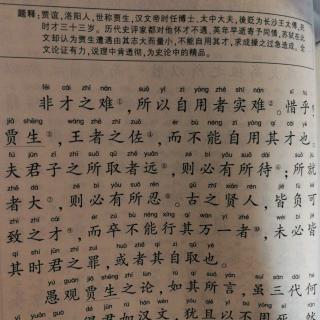 题释:贾谊,洛阳人,世称贾生,汉文帝时任博士、太中大夫,後贬为长沙王太傅,死
时才三十三岁。历代史评家都对他怀才不遇、英年早逝寄予同情,苏轼在此
文却认为贾生遭遇由其志大而量小,不能自用其才,求成操之过急造成。全
文论证有力,说理中肯透彻,为史论中的精品。
fēi cái zhī nán suǒ yǐ zì yòng zhě shí nán xī hū
非才之难①,所以自用者实难②。惜乎!
jiǎ shēng wáng zhě zhī zuǒ ér bù néng zì yòng qí cái yě
贾生③,王者之佐④,而不能自用其才也。
fú jūn zǐ zhī suǒ qǔ zhě yuǎn zé bì yǒu suǒ dài suǒ jiù
夫君子之所取者远⑤,则必有所待⑥;所就
zhě dà zé bì yǒu suǒ rěn gǔ zhī xián rén jiē fù kě
者大⑦,则必有所忍⑧。古之贤人,皆负可
zhì zhī cái ér zú bù néng xíng qí wàn yī zhě wèi bì jiē
致之才⑨,而卒不能行其万一者⑩,未必皆
qí shí jūn zhī zuì huò zhě qí zì qǔ yě
其时君之罪,或者其自取也。
yú guān jiǎ shēng zhī lùn rú qí suǒ yán suī sān dài hé
愚观贾生之论,如其所言,虽三代何
得君如汉文,犹且以不用死,然